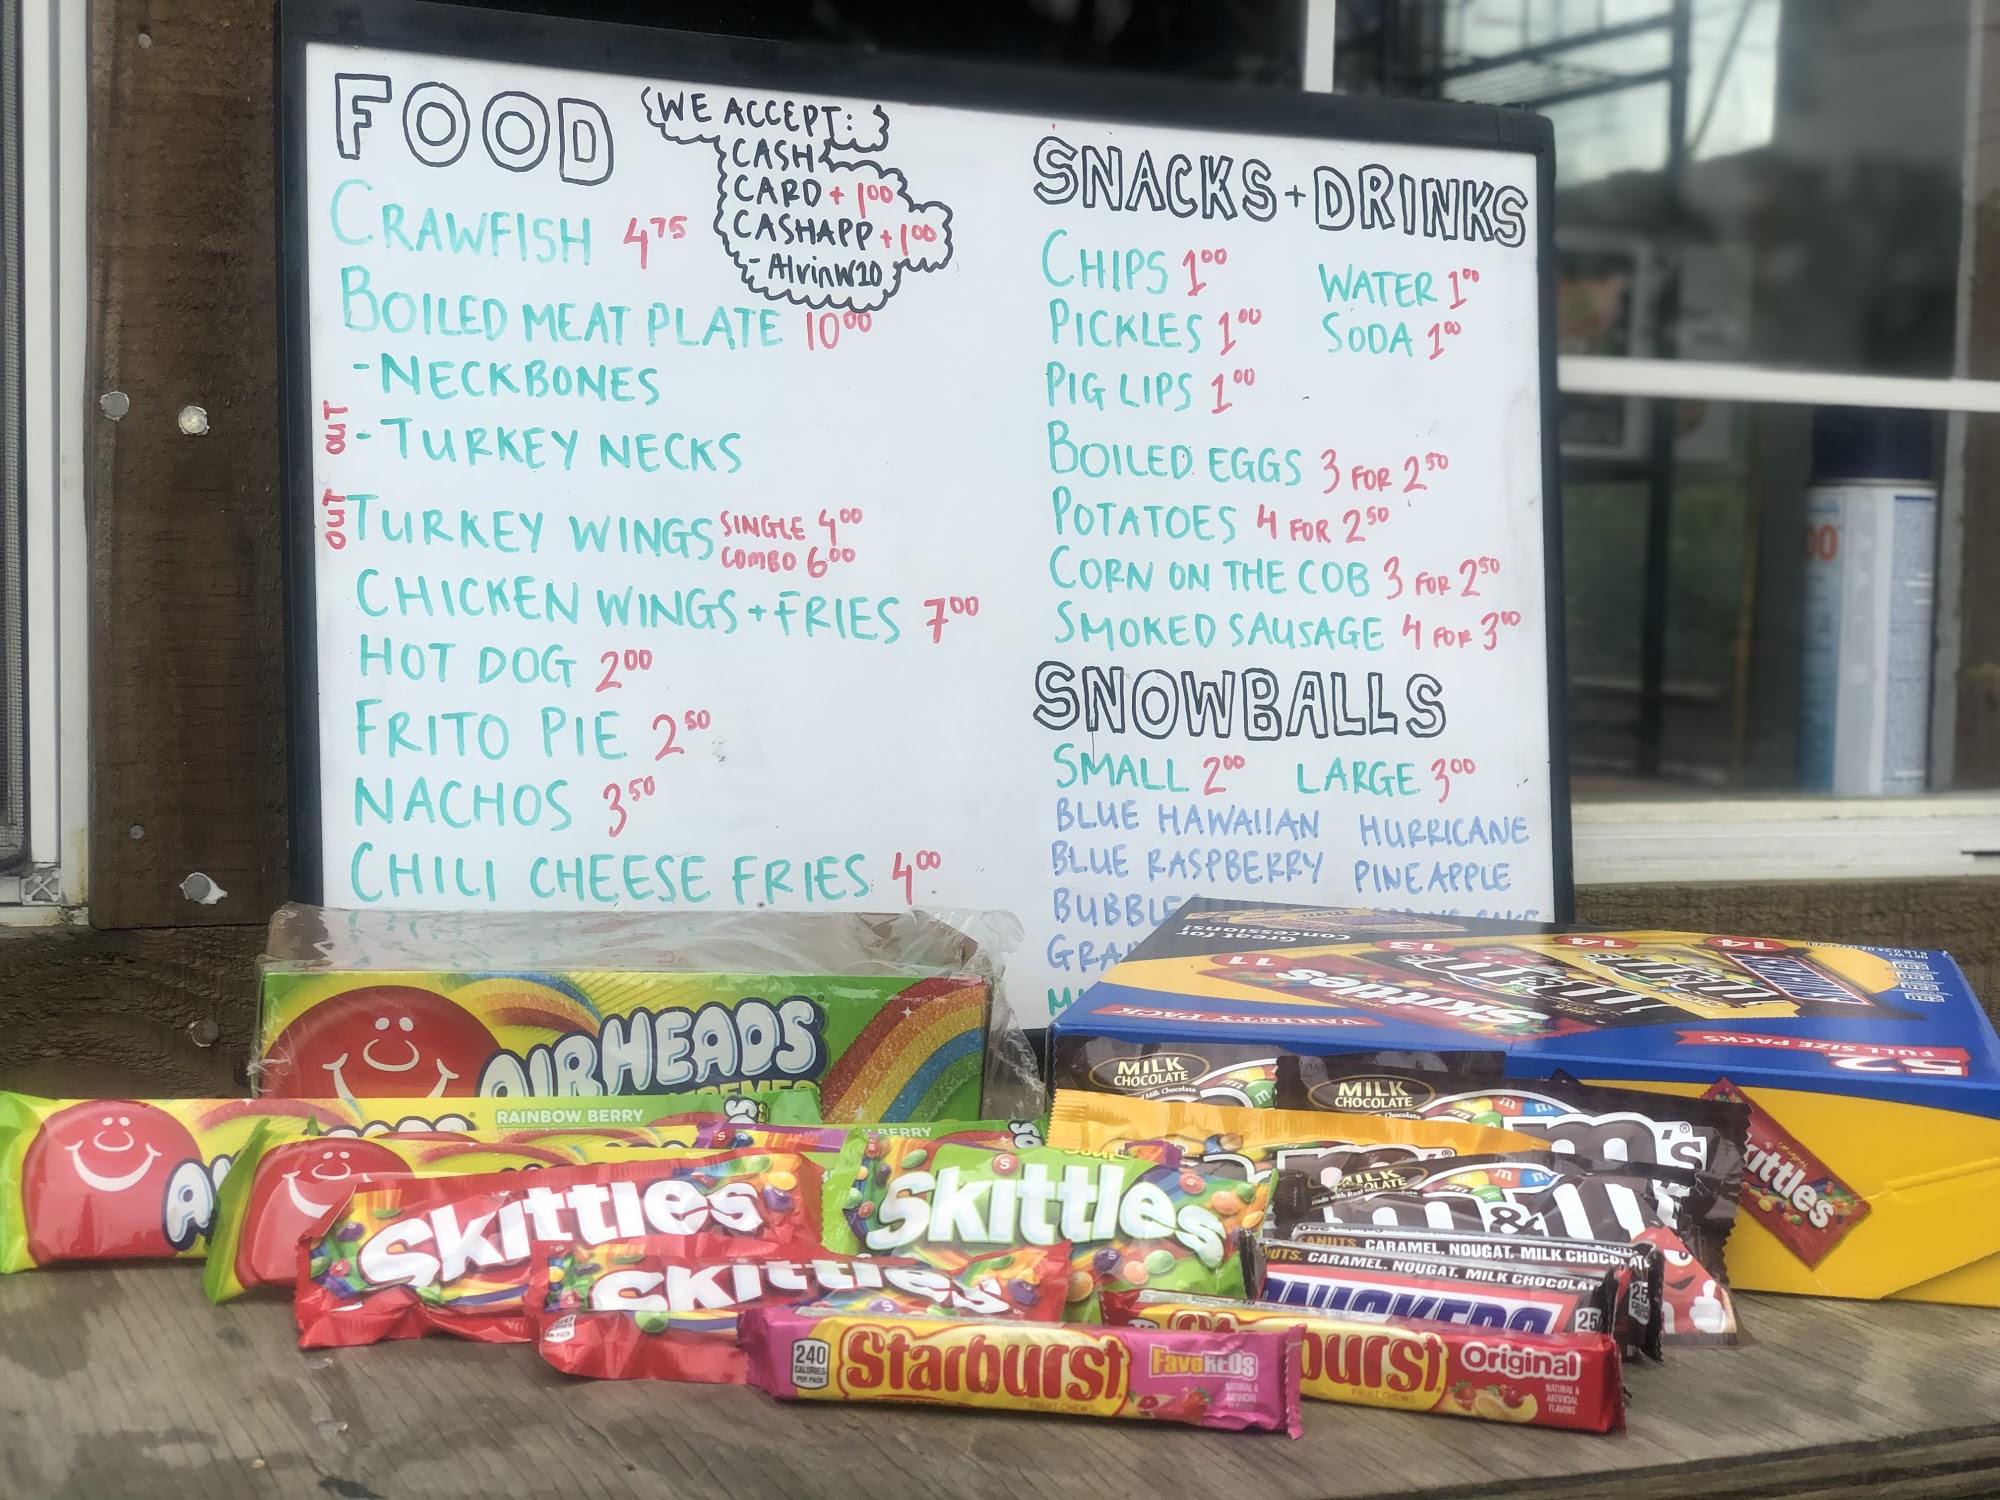 FOOD
{WE ACCEPT:}
CASH
CARD + 1.00
CASHAPP + 1.00
- AlvinW20
CRAWFISH 4.75
BOILED MEAT PLATE 10.00
- NECKBONES
OUT - TURKEY NECKS
OUT TURKEY WINGS SINGLE 4.00
COMBO 6.00
CHICKEN WINGS + FRIES 7.00
HOT DOG 2.00
FRITO PIE 2.50
NACHOS 3.50
CHILI CHEESE FRIES 4.00
SNACKS + DRINKS
CHIPS 1.00 WATER 1.00
PICKLES 1.00 SODA 1.00
PIG LIPS 1.00
BOILED EGGS 3 FOR 2.50
POTATOES 4 FOR 2.50
CORN ON THE COB 3 FOR 2.50
SMOKED SAUSAGE 4 FOR 3.00
SNOWBALLS
SMALL 2.00 LARGE 3.00
BLUE HAWAIIAN HURRICANE
BLUE RASPBERRY PINEAPPLE
BUBBLE
GRA
AIRHEADS
XTREMES
RAINBOW BERRY
BERRY
Skittles
Skittles
Skittles
240
CALORIES
PER PACK
Starburst
FaveREDs
NATURAL &
ARTIFICIAL
FLAVORS
FRUIT CHEWS
Starburst
Original
FRUIT CHEWS
NATURAL &
ARTIFICIAL
FLAVORS
Great for
Concessions!
11
13
14
14
Skittles
VARIETY PACK
FULL SIZE PACKS
52
Skittles
MILK
CHOCOLATE
MILK
CHOCOLATE
m's
MILK
CHOCOLATE
m&m
PEANUTS, CARAMEL, NOUGAT, MILK CHOCOLATE
NUTS, CARAMEL, NOUGAT, MILK CHOCOLAT
SNICKERS
25
250